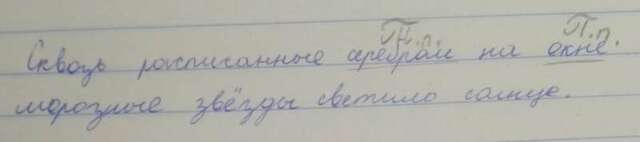 Т.п. П.п.
Сквозь расписанные серебром на окне
морозные звёзды светило солнце.